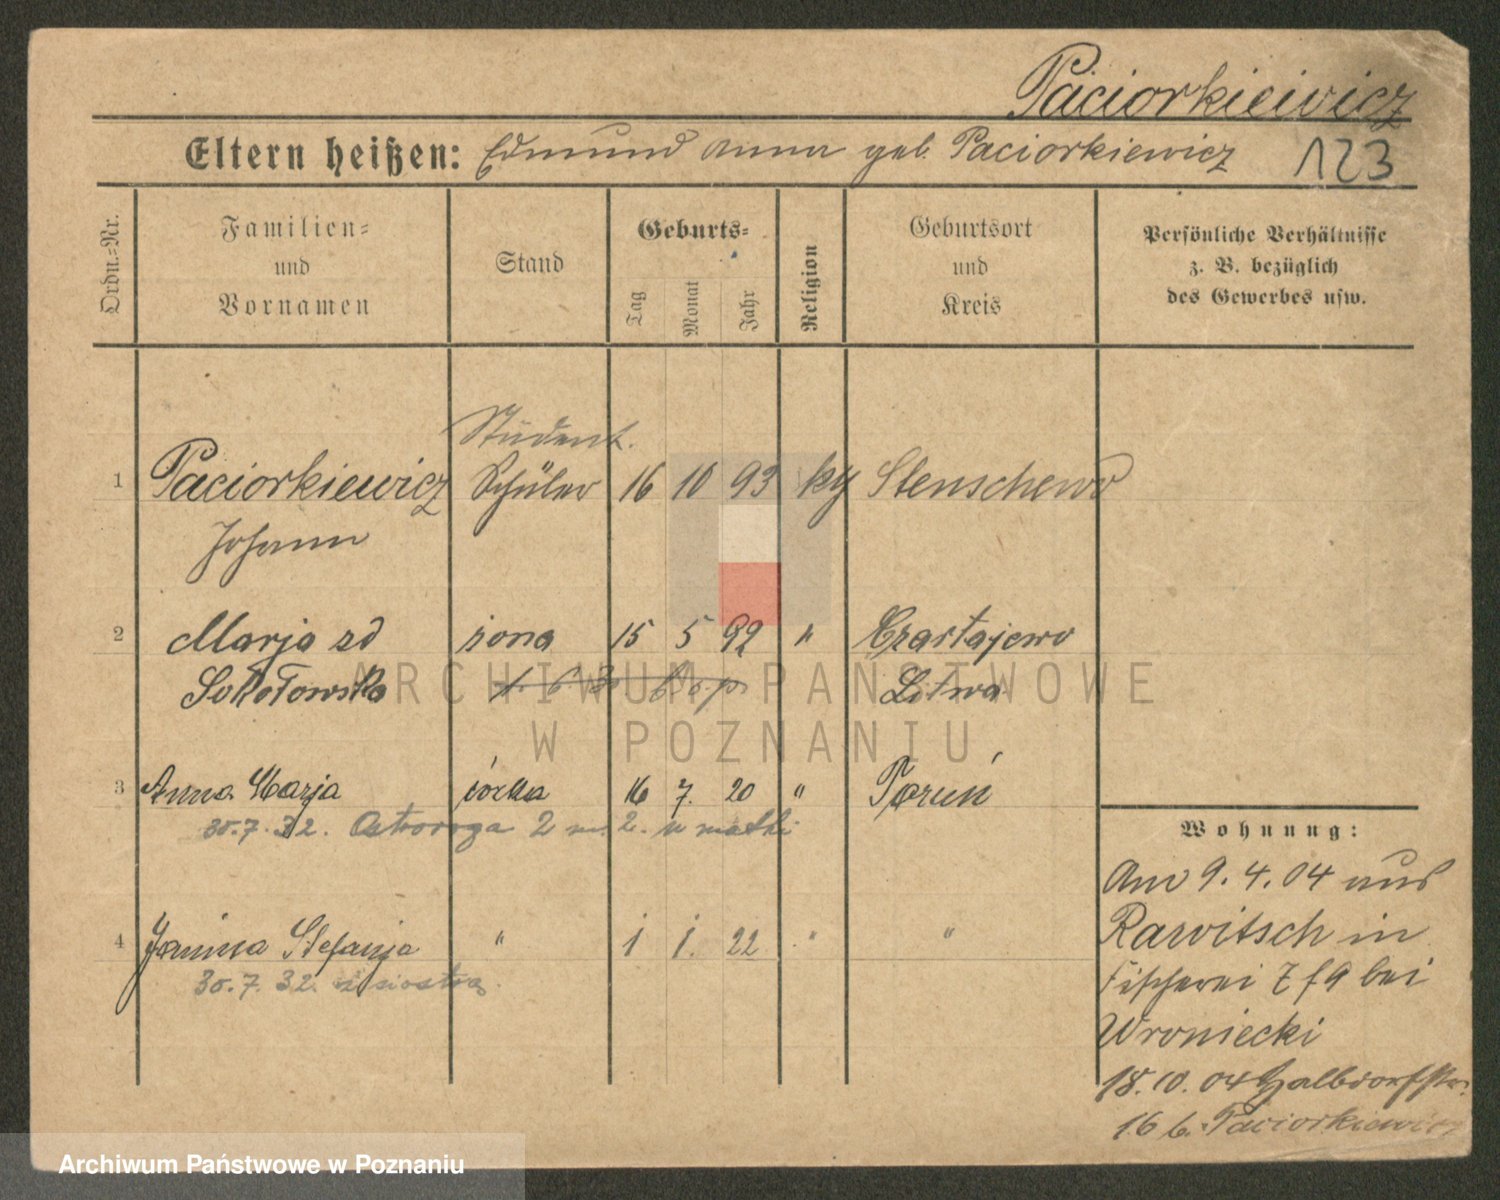 Paciorkieiwicz
Eltern heißen: Edmund Anna geb. Paciorkiewicz 123
Ordn.-Nr.
Familien-
und
Vornamen
Stand
Geburts-
Tag
Monat
Jahr
Religion
Geburtsort
und
Kreis
Persönliche Verhältnisse
z. B. bezüglich
des Gewerbes usw.
Student.
1 Paciorkiewicz Schüler 16 10 93 kg Stenschewo
Johann
2 Marja zd żona 15 5 92 " Czartajewo
Sokołowska 1. 6. 30 Litwa
3 Anna Marja córka 16 7. 20 " Toruń
30.7.32. Ostroroga 2 m. 2. u matki
4 Janina Stefanja " 1 1. 22 " "
30.7.32. z siostrą
Wohnung:
Am 9.4.04 aus
Rawitsch in
Fischerei 7 f 9 bei
Wroniecki
18.10.04 Halbdorfstr.
16 b. Paciorkiewicz
ARCHIWUM PAŃSTWOWE
W POZNANIU
Archiwum Państwowe w Poznaniu